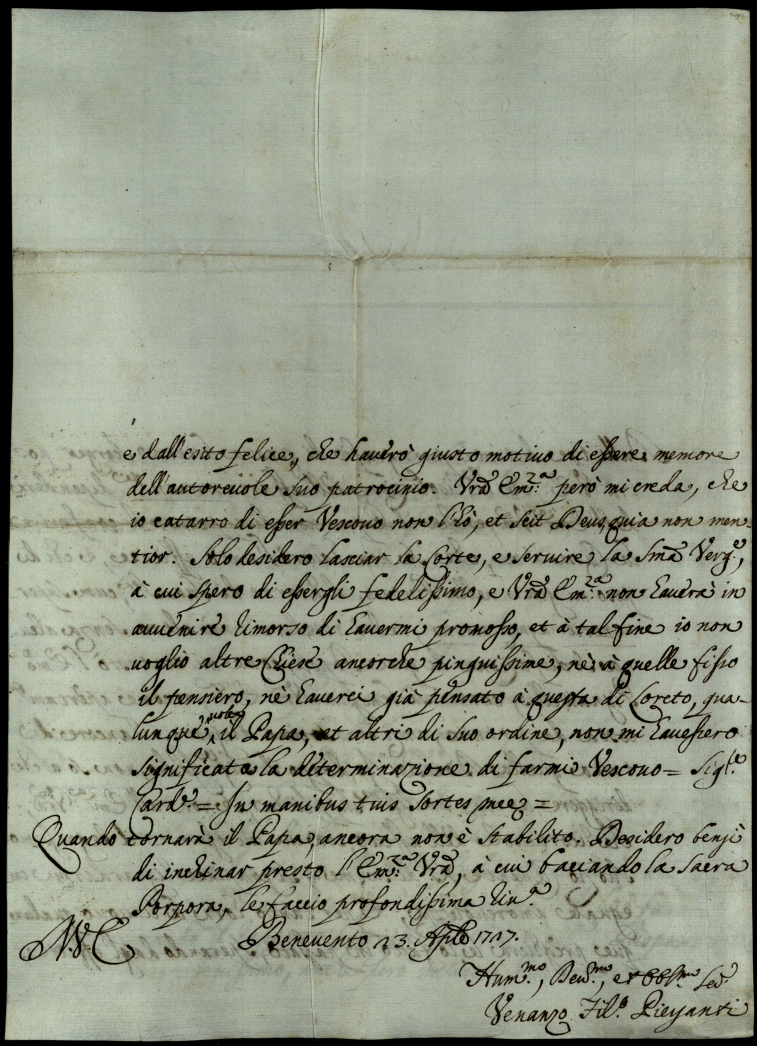 e dall'esito felice, che haverò giusto motivo di essere memore
dell'autorevole suo patrocinio. Vrã Em.za però mi creda, che
io catarro di esser Vescovo non l'hò, et scit Deus, quia non men-
tior. Solo desidero lasciar la Corte, e servire la Smã Verg.e,
à cui spero di essergli fedelissimo, e Vrã Em.za non haverà in
avvenire rimorso di havermi promosso, et à tal fine io non
voglio altre Chiese ancorche pinguissime, nè à quelle fisso
il pensiero, nè haverei già pensato à questa di Loreto, qua-
lunque volta il Papa, et altri di suo ordine, non mi havessero
significata la determinazione di farmi Vescovo = Sig.re
Card.le = In manibus tuis sortes meę =
Quando tornarà il Papa, ancora non è stabilito. Desidero bensì
di inchinar presto l'Em.za Vrã, à cui bacciando la sacra
Porpora, le faccio profondissima riv.a
Benevento 23. Aple 1727.
Hum.mo, Dev.mo, et obbl.mo Ser.
Venanzo Fil.o Pieyanti